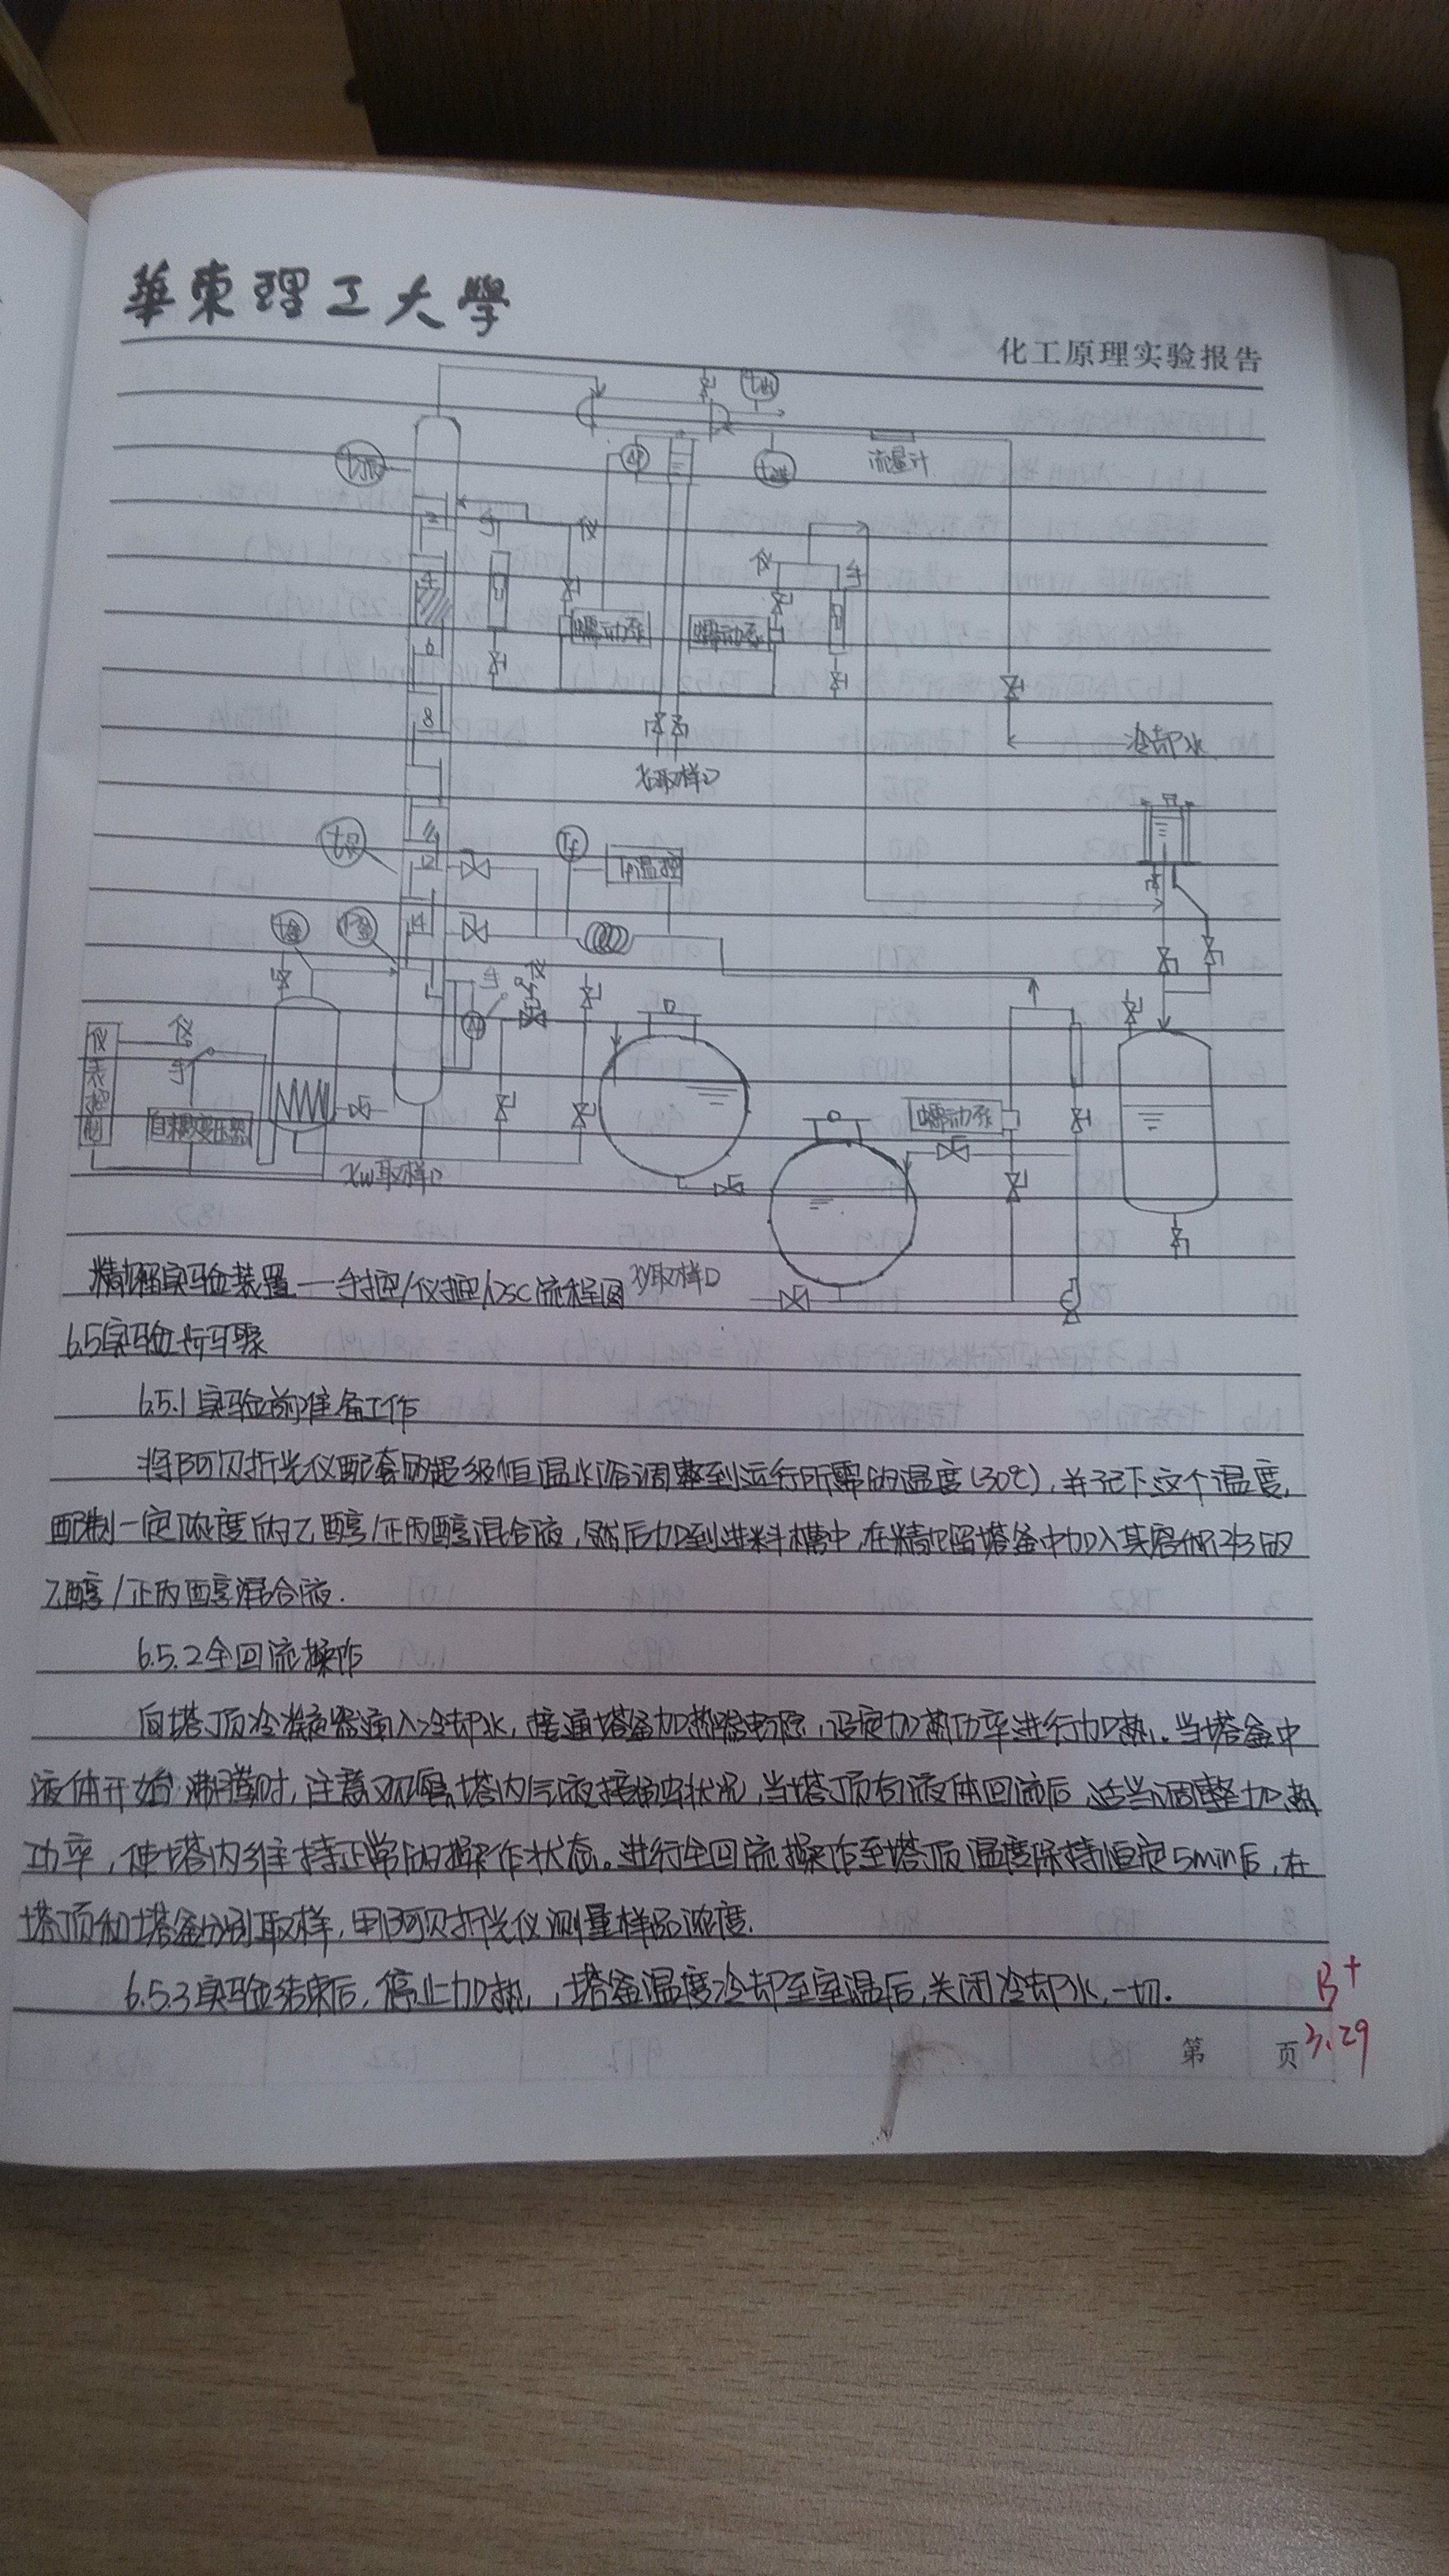 華東理工大學
化工原理实验报告
t顶
流量计
2
手
仪
仪
手
4
蠕动泵
蠕动泵
6
8
冷却水
XD取样口
Tf
Tf温控
12
14
t釜
手
仪
仪表控制
仪
手
自耦变压器
蠕动泵
XW取样口
精馏实验装置——手控/仪控/DSC流程图
取样口
6.5实验步骤
6.5.1实验前准备工作
将阿贝折光仪配套的超级恒温水浴调整到运行所需的温度(30℃),并记下这个温度,
配制一定浓度的乙醇/正丙醇混合液,然后加到进料槽中,在精馏塔釜中加入其容积2/3的
乙醇/正丙醇混合液.
6.5.2全回流操作
向塔顶冷凝器通入冷却水,接通塔釜加热器电源,设定加热功率进行加热。当塔釜中
液体开始沸腾时,注意观察塔内气液接触状况,当塔顶有液体回流后,适当调整加热
功率,使塔内维持正常的操作状态。进行全回流操作至塔顶温度保持恒定5min后,在
塔顶和塔釜分别取样,用阿贝折光仪测量样品浓度.
6.5.3实验结束后,停止加热,塔釜温度冷却至室温后,关闭冷却水,一切.
B+
第 页
3.29